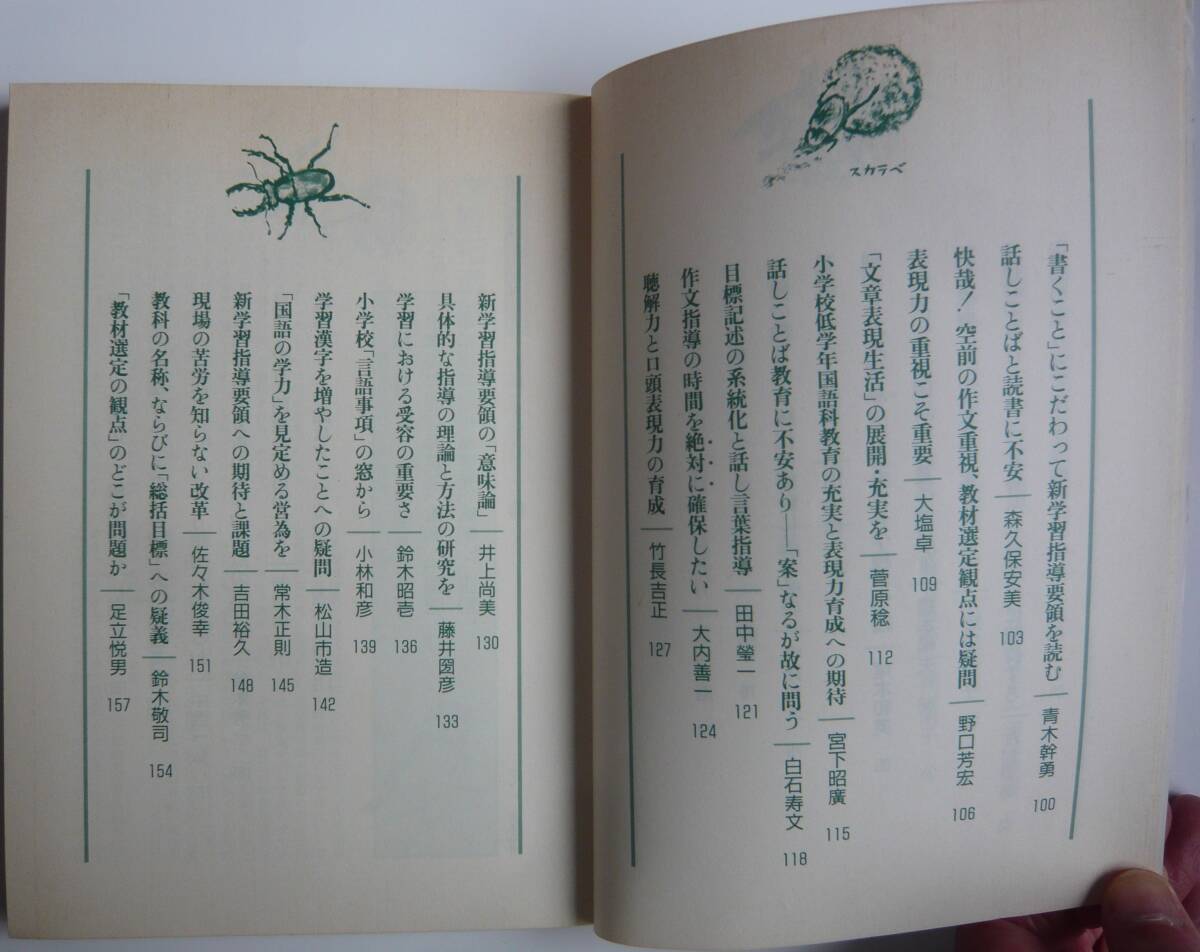 スカラベ
「書くこと」にこだわって新学習指導要領を読む 青木幹勇 100
話しことばと読書に不安 森久保安美 103
快哉! 空前の作文重視、教材選定観点には疑問 野口芳宏 106
表現力の重視こそ重要 大塩卓 109
「文章表現生活」の展開・充実を 菅原稔 112
小学校低学年国語科教育の充実と表現力育成への期待 宮下昭廣 115
話しことば教育に不安あり——「案」なるが故に問う 白石寿文 118
目標記述の系統化と話し言葉指導 田中瑩一 121
作文指導の時間を絶対に確保したい 大内善一 124
聴解力と口頭表現力の育成 竹長吉正 127
新学習指導要領の「意味論」 井上尚美 130
具体的な指導の理論と方法の研究を 藤井圀彦 133
学習における受容の重要さ 鈴木昭壱 136
小学校「言語事項」の窓から 小林和彦 139
学習漢字を増やしたことへの疑問 松山市造 142
「国語の学力」を見定める営為を 常木正則 145
新学習指導要領への期待と課題 吉田裕久 148
現場の苦労を知らない改革 佐々木俊幸 151
教科の名称、ならびに「総括目標」への疑義 鈴木敬司 154
「教材選定の観点」のどこが問題か 足立悦男 157